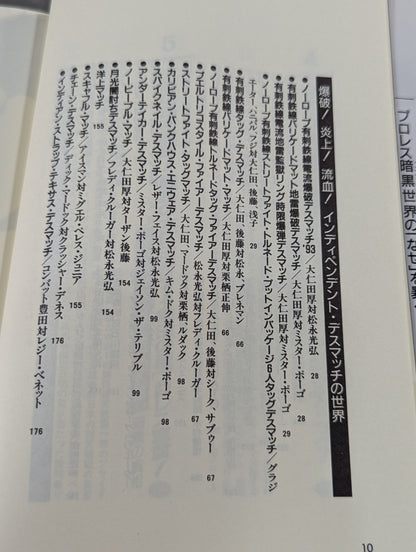 爆破！炎上！流血！インディペンデント・デスマッチの世界
●ノーロープ有刺鉄線電流爆破デスマッチ'93／大仁田厚対松永光弘 28
●有刺鉄線バリケードマット地雷爆破デスマッチ／大仁田厚対ミスター・ポーゴ 28
●有刺鉄線電流地雷監獄リング時限爆弾デスマッチ／大仁田厚対ミスター・ポーゴ 29
●ノーロープ有刺鉄線ストリートファイト・トルネード・プットインパッケージ6人タッグデスマッチ／グラジ
エーター、ハンニバル、フジ対大仁田、後藤、浅子 29
●有刺鉄線タッグ・デスマッチ／大仁田、後藤対松永、ブレネマン 66
●有刺鉄線バリケードマット・マッチ／大仁田厚対栗栖正伸 66
●ノーロープ有刺鉄線トルネードタッグ・ファイアーデスマッチ／大仁田、後藤対シーク、サブゥー 67
●プエルトリコスタイル・ファイアーデスマッチ／松永光弘対フレディ・クルーガー 67
●ストリートファイト・タッグ・デスマッチ／大仁田、マードック対栗栖、ルダック 98
●カリビアン・バンクハウス・エニウェア・デスマッチ／キム・ドク対ミスター・ポーゴ 98
●スパイクネイル・デスマッチ／レザー・フェイス対松永光弘 99
●アンダーテイカー・デスマッチ／ミスター・ポーゴ対ジェイソン・ザ・テリブル 99
●ノーピープル・マッチ／大仁田厚対ターザン後藤 154
●月光闇討ちデスマッチ／フレディ・クルーガー対松永光弘 154
●洋上マッチ 155
●スキャフル・マッチ／アイスマン対ミゲル・ペレス・ジュニア 155
●チェーン・デスマッチ／ディック・マードック対クラッシャー・デネス 176
●インディアン・ストラップ・テキサス・デスマッチ／コンバット豊田対レジー・ベネット 176
10
プロレス暗黒世界の